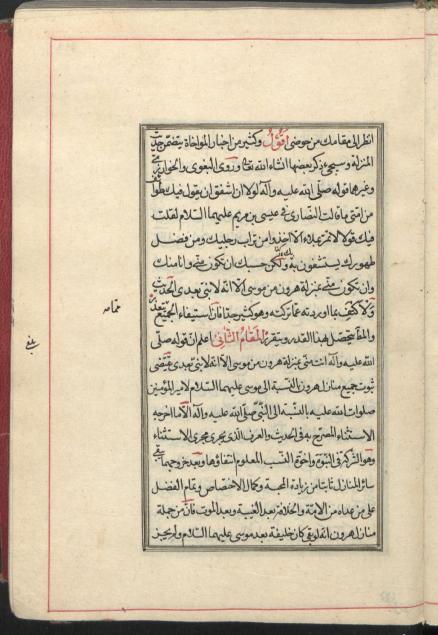 انظر الى مقامك من حوضى اقول وكثير من اخبار المواخاة يتضمن حديث
المنزلة وسيجئ ذكر بعضها انشاء الله تعالى وروى البغوى والخوارزمى
وغيرهما قوله صلى الله عليه وآله لولا ان اشفق ان يقول فيك طوائف
من امتى ما قالت النصارى فى عيسى بن مريم عليهما السلام لقلت
فيك قولا لا تمر بملاء الا اخذوا من تراب رجليك ومن فضل
طهورك يستشفون به ولكن حسبك ان تكون منى وانا منك
وان تكون منى بمنزلة هرون من موسى الا انه لا نبى بعدى الحديث
ولا كتفى بما اوردته عما تركته وهو كثير جدا فان استيفاء الجميع
والمطلب يحصل بهذا القدر ويتقرر المقام الثانى اعلم ان قوله صلى
الله عليه وآله انت منى بمنزلة هرون من موسى الا انه لا نبى بعدى يقتضى
ثبوت جميع منازل هرون بالنسبة الى موسى عليهما السلام لامير المؤمنين
صلوات الله عليه بالنسبة الى النبى صلى الله عليه وآله الا ما اخرجه
الاستثناء المصرح به فى الحديث والعرف الذى يجرى مجرى الاستثناء
وهو الشركة فى النبوة واخوة النسب المعلوم انتفاؤها وبعد خروجهما يبقى
سائر المنازل ثابتا من زيادة المحبة وكمال الاختصاص وتمام الفضل
على من عداه من الامة والخلافة بعد الغيبة وبعد الموت فان من جملة
منازل هرون انه لو بقى كان خليفة بعد موسى عليهما السلام ولم يجز
بلغ